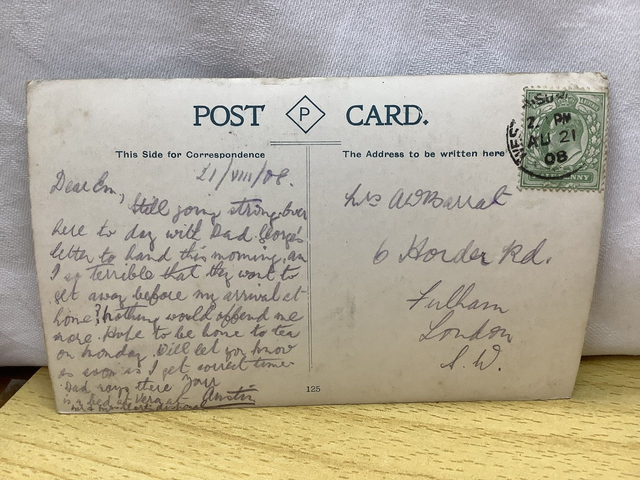 POST P CARD.
This Side for Correspondence
The Address to be written here
21/VIII/08.
Dear Em,
Still going strong. Over
here to day with Dad. George's
letter to hand this morning, am
I so terrible that they want to
get away before my arrival at
home? Nothing would offend me
more. Hope to be home to tea
on Monday. Will let you know
as soon as I get correct time.
Dad says there
is a bed at Vera at
Yours
Austin
Mrs A W Barrat
6 Horder Rd.
Fulham
London
S.W.
PM
AU 21
08
125